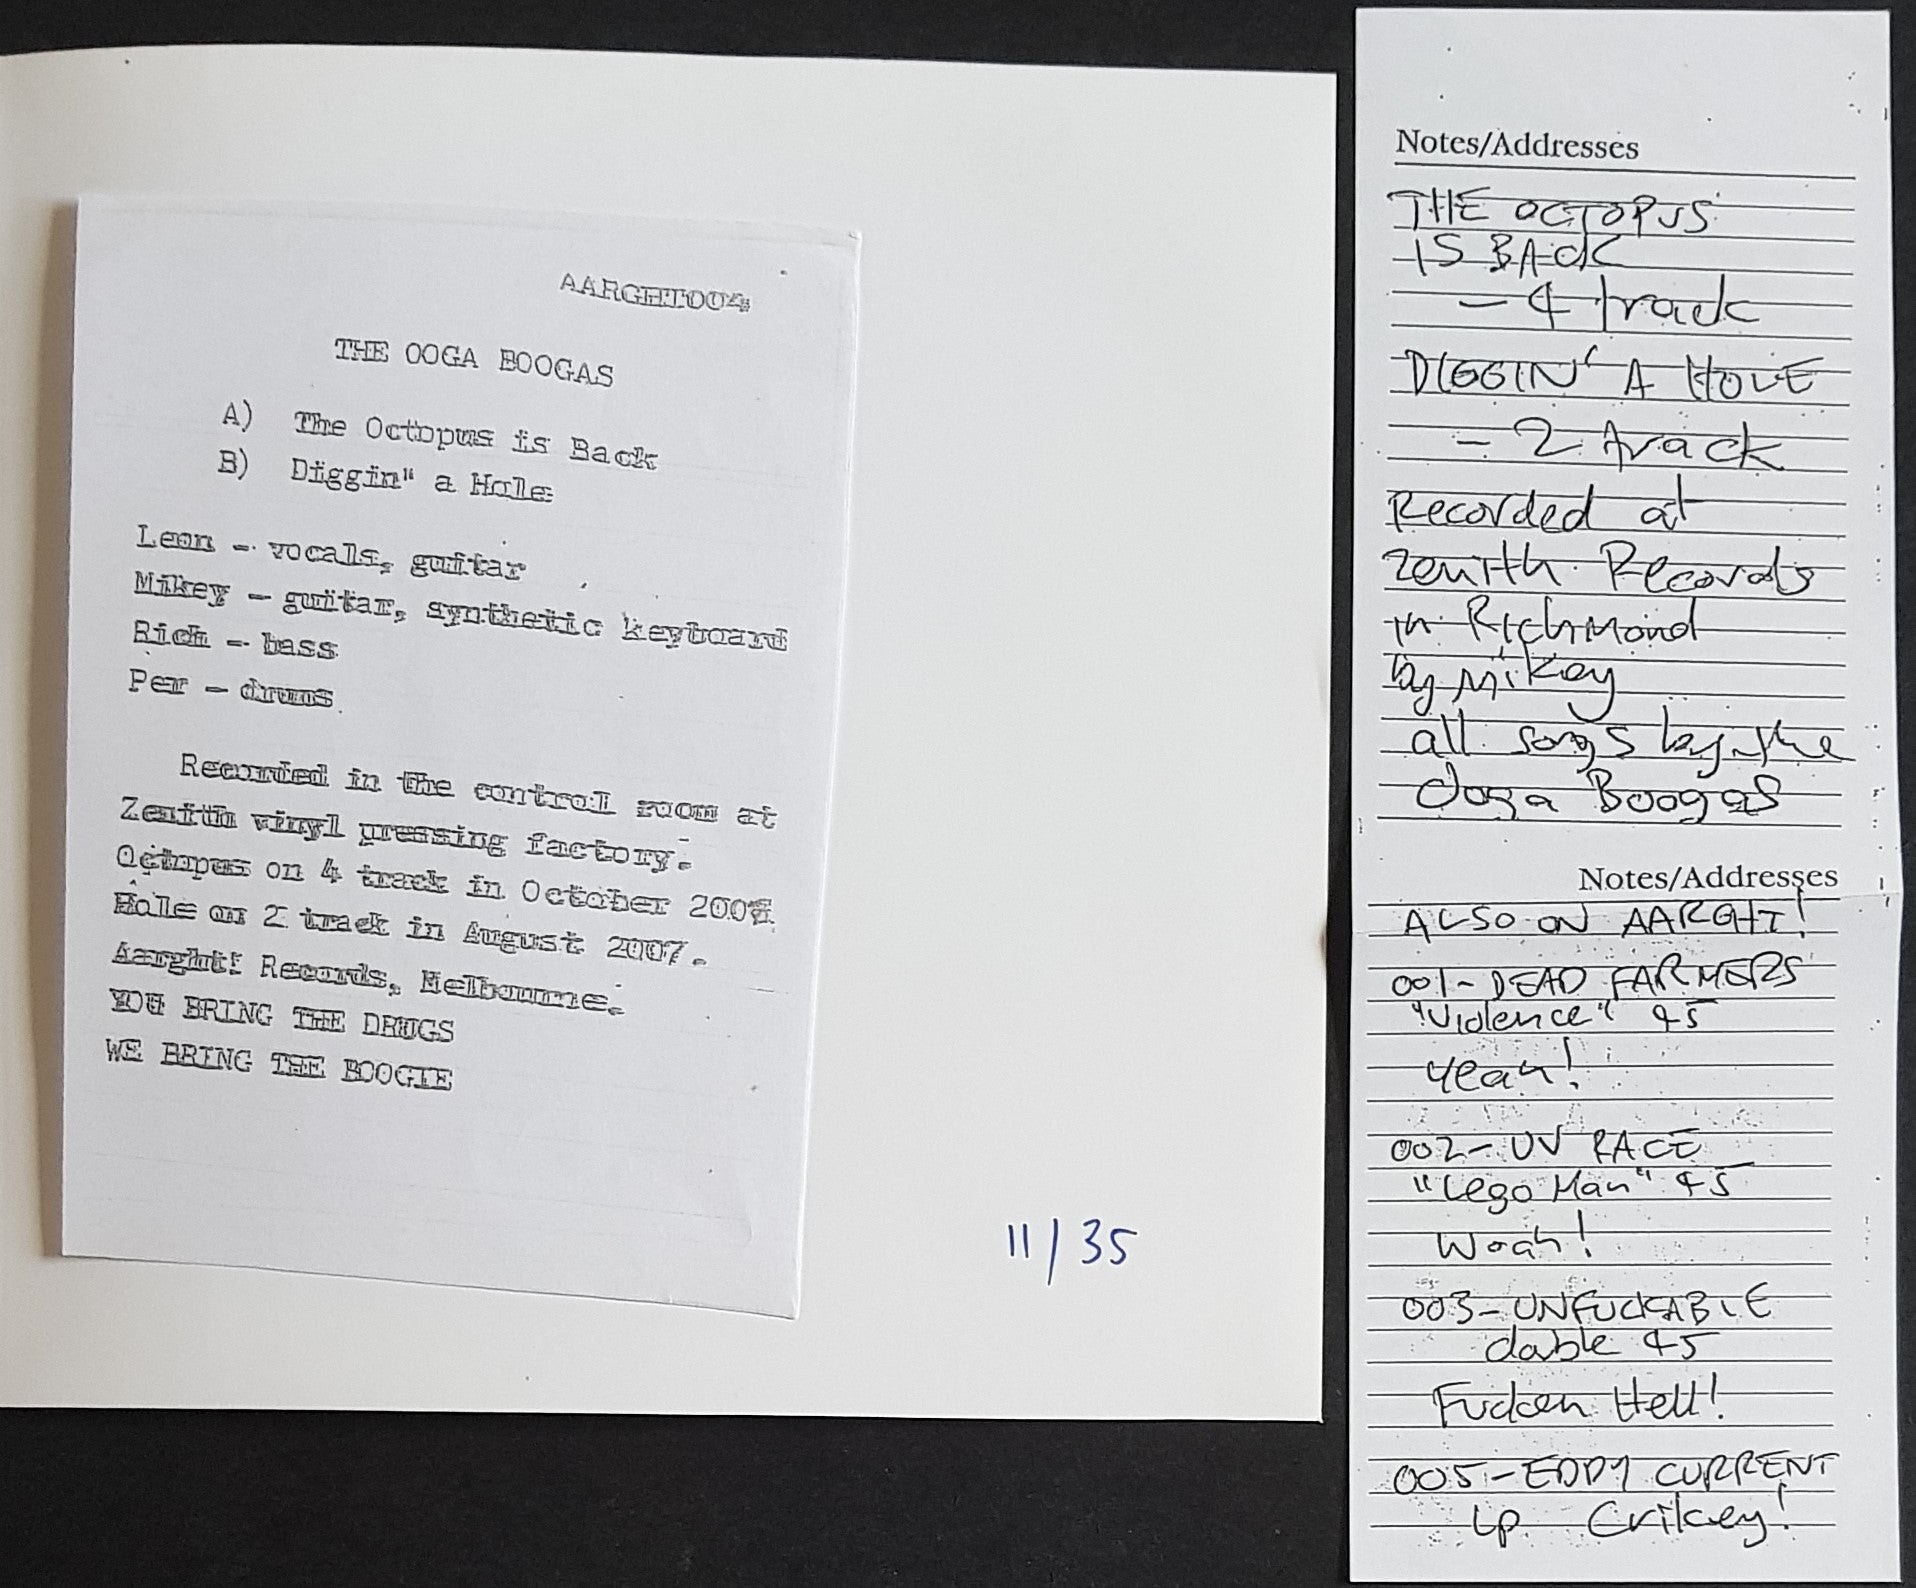 AARGHT004
THE OOGA BOOGAS
A) The Octopus is Back
B) Diggin" a Hole
Leon - vocals, guitar
Mikey - guitar, synthetic keyboard
Rich - bass
Per - drums
Recorded in the control room at
Zenith vinyl pressing factory.
Octopus on 4 track in October
Hole on 2 track in August 2007.
Aarght! Records, Melbourne.
YOU BRING THE DRUGS
WE BRING THE BOOGIE
11/35
Notes/Addresses
THE OCTOPUS
IS BACK
- 4 track
DIGGIN' A HOLE
- 2 track
Recorded at
Zenith Records
in Richmond
by Mikey
all songs by the
Ooga Boogas
Notes/Addresses
ALSO ON AARGHT!
001- DEAD FARMERS
"Violence" 45
Yeah!
002- UV RACE
"Lego Man" 45
Woah!
003- UNFUCKABLE
double 45
Fucken Hell!
005- EDDY CURRENT
Lp Crikey!